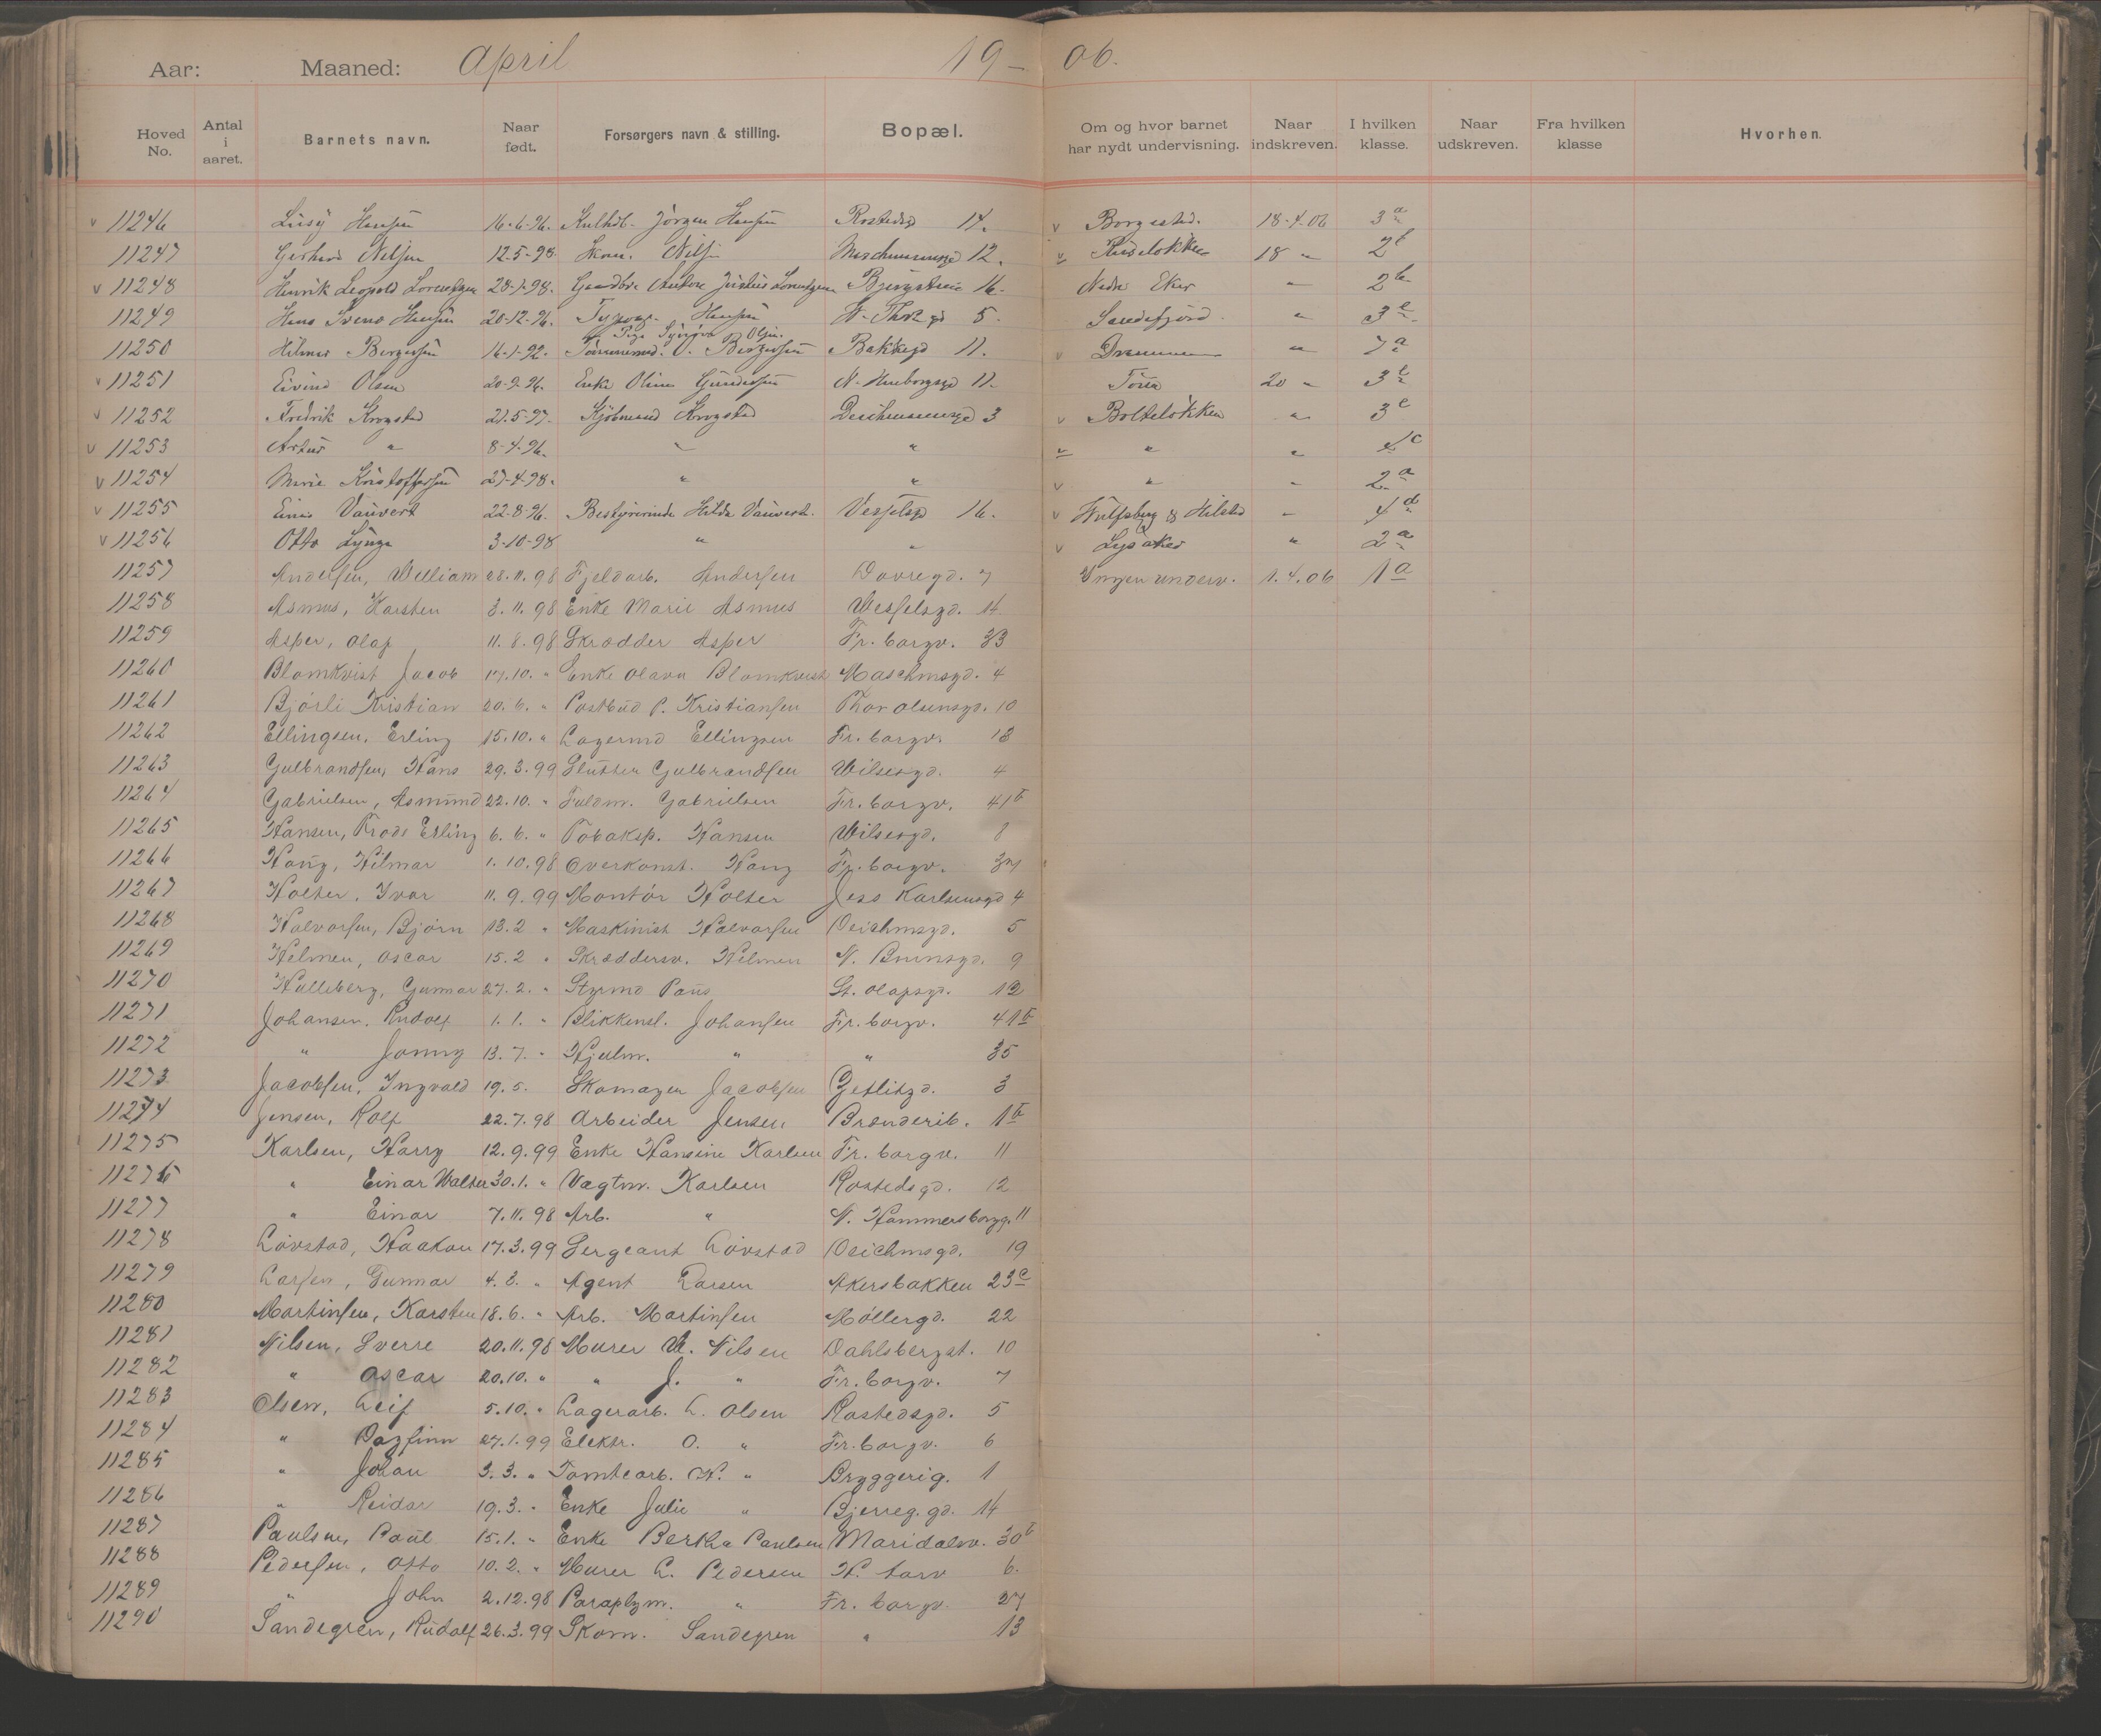 Aar: Maaned: April 19- 06.
Hoved No. Antal i aaret. Barnets navn. Naar født. Forsørgers navn & stilling. Bopæl. Om og hvor barnet har nydt undervisning. Naar indskreven. I hvilken klasse. Naar udskreven. Fra hvilken klasse Hvorhen.
v 11246 Hansen 16-6-96. Jörgen Hansen Rostedsgd 14. v 18-4-06 3a
11247 Nilsen 12-5-98 12. v 18 "
v 11248 Henrik Leopold Lorentzen 28-1-98. 16. Nedre Eker " 2b
11249 Hansen 20-12-96. Hansen 5. Sandefjord. "
11250 Hilmar Bergersen 16-1-92. Bergersen Bakkegd 11. v Drammen " 7a
v 11251 Eivind Olsen 20-9-96. Enke Gundersen 11. 20 "
v 11252 Fredrik Krogstad 21-5-97. Kjöbmand Krogstad 3 v Bolteløkken " 3c
v 11253 " 8-4-96. " " v " "
v 11254 Marie Kristoffersen 27-4-98. " " v " " 2a
v 11255 Vauvert 22-8-96. Bestyrerinde Hilda Vauvert. Vesselsgd 16. v " 4d
v 11256 Otto Lynge 3-10-98 " " v Lysaker " 2a
11257 Andersen, William 28.11.98 Fjeldarb. Andersen Dovregd. 7 Ingen underv. 1.4.06 1a
11258 Asmus, Karsten 3.11.98 Enke Marie Asmus Wesselsgd. 14
11259 Asper, Olaf 11.8.98 Skrædder Asper Fr. borgv. 33
11260 Blomkvist Jacob 17.10. " Enke Olava Blomkvist Maschmsgd. 4
11261 Bjórli Kristian 20.6. " Postbud P. Kristiansen Thor olsensgd. 10
11262 Ellingsen, Erling 15.10. " Lagermd Ellingsen Fr. borgv. 18
11263 Gulbrandsen, Hans 29.3.99 Slutter Gulbrandsen Wilsesgd. 4
11264 Gabrielsen, Asmund 22.10. " Fuldm. Gabrielsen Fr. borgv. 41b
11265 Hansen, Frode Erling 6.6. " Tobaksp. Hansen Wilsesgd. 8
11266 Haug, Hilmar 1.10.98 Overkonst. Haug Fr. borgv.
11267 Holter, Ivar 11.9.99 Montör Holter Jess Karlsensgd 4
11268 Halvorsen, Björn 13.2 " Maskinist Halvorsen Deichmsgd. 5
11269 Helmen, Oscar 15.2 " Skræddersv. Helmen N. Brunsgd. 9
11270 Hulleberg, Gunnar 27.2. " Styrmd Paus St. Olafsgd. 12
11271 Johansen, Rudolf 1.1. " Blikkensl. Johansen Fr. borgv. 41b
11272 " Jonny 13.7. " Hjulm. " " 35
11273 Jacobsen, Ingvald 19.5. Skomager Jacobsen Getlitzgd. 3
11274 Jensen, Rolf 22.7.98 Arbeider Jensen Brenderib. 1b
11275 Karlsen, Harry 12.9.99 Enke Hansine Karlsen Fr. borgv. 11
11276 " Einar Walter 30.1. " Vagtm. Karlsen Rostedsgd. 12
11277 " Einar 7.11.98 Arb. " N. Hammersborgg. 11
11278 Lövstad, Haakon 17.3.99 Sergeant Lövstad Deichmsgd. 19
11279 Larsen, Gunnar 4.3. " Agent Larsen Akersbakken 23c
11280 Martinsen, Karsten 18.6. " Arb. Martinsen Möllergd. 22
11281 Nilsen, Sverre 20.11.98 Murer Nilsen Dahlsbergst. 10
11282 " Oscar 20.10. " " J. " Fr. borgv. 7
11283 Olsen, Leif 5.10. " Lagerarb. L. Olsen Rostedsgd. 5
11284 " Dagfinn 27.1.99 Elektr. O. " Fr. borgv. 6
11285 " Johan 3.3. " Tomtearb. K. " Bryggerig. 1
11286 " Reidar 19.3. " Enke Julie " Bjerreg.gd. 14
11287 Paulsen, Paul 15.1. " Enke Bertha Paulsen Maridalsv. 30b
11288 Pedersen, Otto 10.2. " Murer L. Pedersen torv 6.
11289 " John 2.12.98 Paraplym. " Fr. borgv. 27
11290 Sandegren, Rudolf 26.3.99 Skom. Sandegren " 13